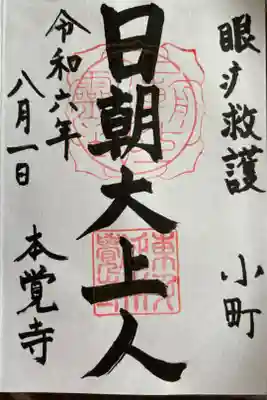 眼病救護
小町
日朝大上人
令和六年
八月一日
本覚寺